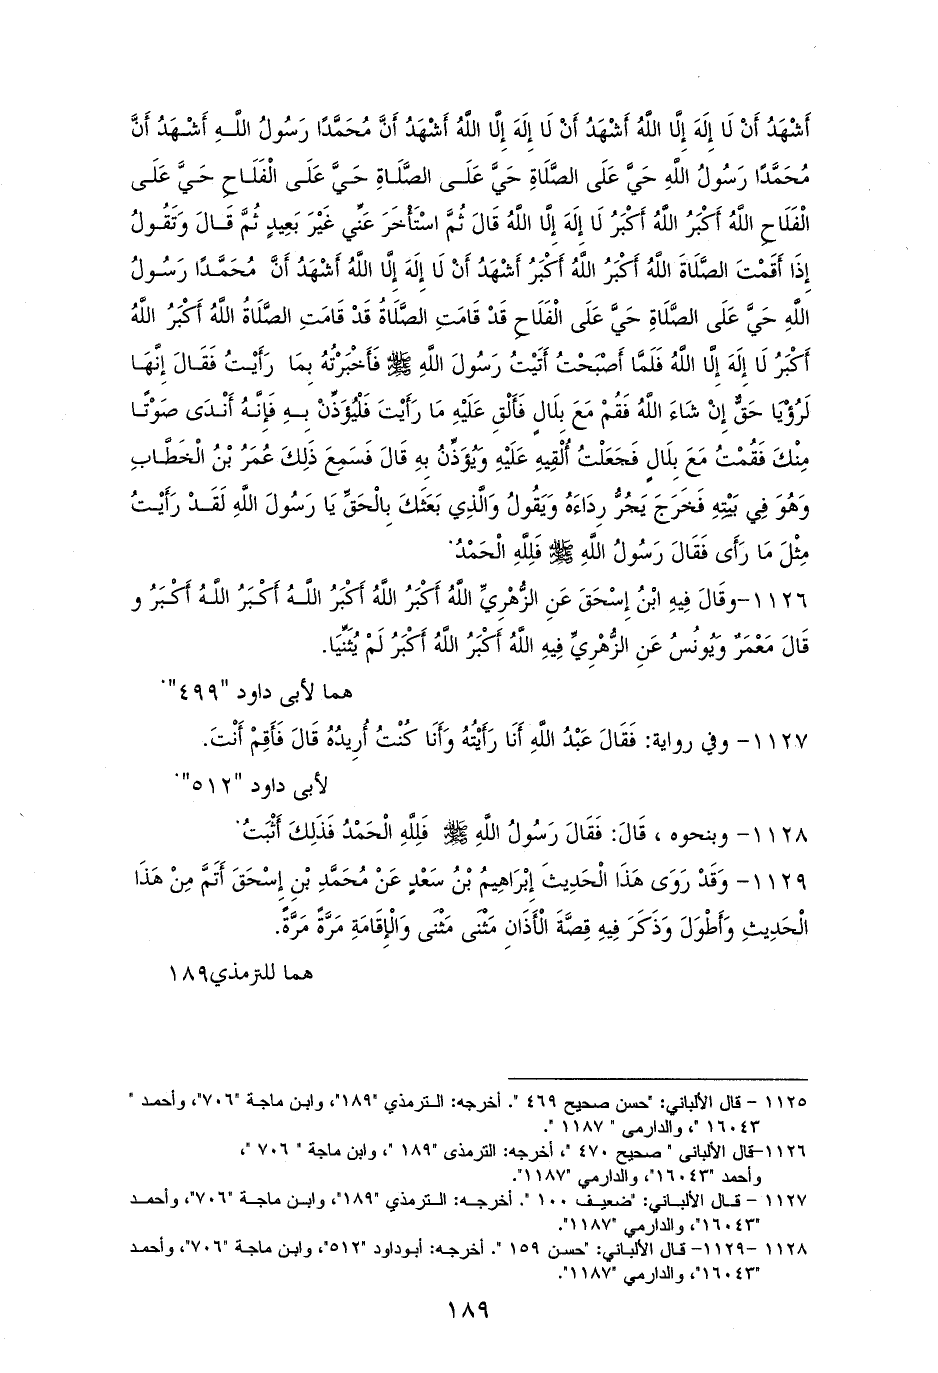 أَشْهَدُ أَنْ لَا إِلَهَ إِلَّا اللَّهُ أَشْهَدُ أَنْ لَا إِلَهَ إِلَّا اللَّهُ أَشْهَدُ أَنَّ مُحَمَّدًا رَسُولُ اللَّهِ أَشْهَدُ أَنَّ
مُحَمَّدًا رَسُولُ اللَّهِ حَيَّ عَلَى الصَّلَاةِ حَيَّ عَلَى الصَّلَاةِ حَيَّ عَلَى الْفَلَاحِ حَيَّ عَلَى
الْفَلَاحِ اللَّهُ أَكْبَرُ اللَّهُ أَكْبَرُ لَا إِلَهَ إِلَّا اللَّهُ قَالَ ثُمَّ اسْتَأْخَرَ عَنِّي غَيْرَ بَعِيدٍ ثُمَّ قَالَ وَتَقُولُ
إِذَا أَقَمْتَ الصَّلَاةَ اللَّهُ أَكْبَرُ اللَّهُ أَكْبَرُ أَشْهَدُ أَنْ لَا إِلَهَ إِلَّا اللَّهُ أَشْهَدُ أَنَّ مُحَمَّدًا رَسُولُ
اللَّهِ حَيَّ عَلَى الصَّلَاةِ حَيَّ عَلَى الْفَلَاحِ قَدْ قَامَتِ الصَّلَاةُ قَدْ قَامَتِ الصَّلَاةُ اللَّهُ أَكْبَرُ اللَّهُ
أَكْبَرُ لَا إِلَهَ إِلَّا اللَّهُ فَلَمَّا أَصْبَحْتُ أَتَيْتُ رَسُولَ اللَّهِ ﷺ فَأَخْبَرْتُهُ بِمَا رَأَيْتُ فَقَالَ إِنَّهَا
لَرُؤْيَا حَقٌّ إِنْ شَاءَ اللَّهُ فَقُمْ مَعَ بِلَالٍ فَأَلْقِ عَلَيْهِ مَا رَأَيْتَ فَلْيُؤَذِّنْ بِهِ فَإِنَّهُ أَنْدَى صَوْتًا
مِنْكَ فَقُمْتُ مَعَ بِلَالٍ فَجَعَلْتُ أُلْقِيهِ عَلَيْهِ وَيُؤَذِّنُ بِهِ قَالَ فَسَمِعَ ذَلِكَ عُمَرُ بْنُ الْخَطَّابِ
وَهُوَ فِي بَيْتِهِ فَخَرَجَ يَجُرُّ رِدَاءَهُ وَيَقُولُ وَالَّذِي بَعَثَكَ بِالْحَقِّ يَا رَسُولَ اللَّهِ لَقَدْ رَأَيْتُ
مِثْلَ مَا رَأَى فَقَالَ رَسُولُ اللَّهِ ﷺ فَلِلَّهِ الْحَمْدُ.
١١٢٦-وقَالَ فِيهِ ابْنُ إِسْحَقَ عَنِ الزُّهْرِيِّ اللَّهُ أَكْبَرُ اللَّهُ أَكْبَرُ اللَّهُ أَكْبَرُ اللَّهُ أَكْبَرُ و
قَالَ مَعْمَرٌ وَيُونُسُ عَنِ الزُّهْرِيِّ فِيهِ اللَّهُ أَكْبَرُ اللَّهُ أَكْبَرُ لَمْ يُثَنِّيَا.
هما لأبى داود "٤٩٩".
١١٢٧- وفي رواية: فَقَالَ عَبْدُ اللَّهِ أَنَا رَأَيْتُهُ وَأَنَا كُنْتُ أُرِيدُهُ قَالَ فَأَقِمْ أَنْتَ.
لأبى داود "٥١٢".
١١٢٨- وبنحوه ، قَالَ: فَقَالَ رَسُولُ اللَّهِ ﷺ فَلِلَّهِ الْحَمْدُ فَذَلِكَ أَثْبَتُ.
١١٢٩- وَقَدْ رَوَى هَذَا الْحَدِيثَ إِبْرَاهِيمُ بْنُ سَعْدٍ عَنْ مُحَمَّدِ بْنِ إِسْحَقَ أَتَمَّ مِنْ هَذَا
الْحَدِيثِ وَأَطْوَلَ وَذَكَرَ فِيهِ قِصَّةَ الْأَذَانِ مَثْنَى مَثْنَى وَالْإِقَامَةِ مَرَّةً مَرَّةً.
هما للترمذي١٨٩
١١٢٥ - قال الألباني: "حسن صحيح ٤٦٩ ". أخرجه: الترمذي "١٨٩"، وابن ماجة "٧٠٦"، وأحمد "
١٦٠٤٣ "، والدارمى " ١١٨٧ ".
١١٢٦-قال الألبانى " صحيح ٤٧٠ "، أخرجه: الترمذى "١٨٩ "، وابن ماجة " ٧٠٦ "،
وأحمد "١٦٠٤٣"، والدارمي "١١٨٧".
١١٢٧ - قال الألباني: "ضعيف ١٠٠ ". أخرجه: الترمذي "١٨٩"، وابن ماجة "٧٠٦"، وأحمد
"١٦٠٤٣"، والدارمي "١١٨٧".
١١٢٨ -١١٢٩- قال الألباني: "حسن ١٥٩ ". أخرجه: أبوداود "٥١٢"، وابن ماجة "٧٠٦"، وأحمد
"١٦٠٤٣"، والدارمي "١١٨٧".
١٨٩